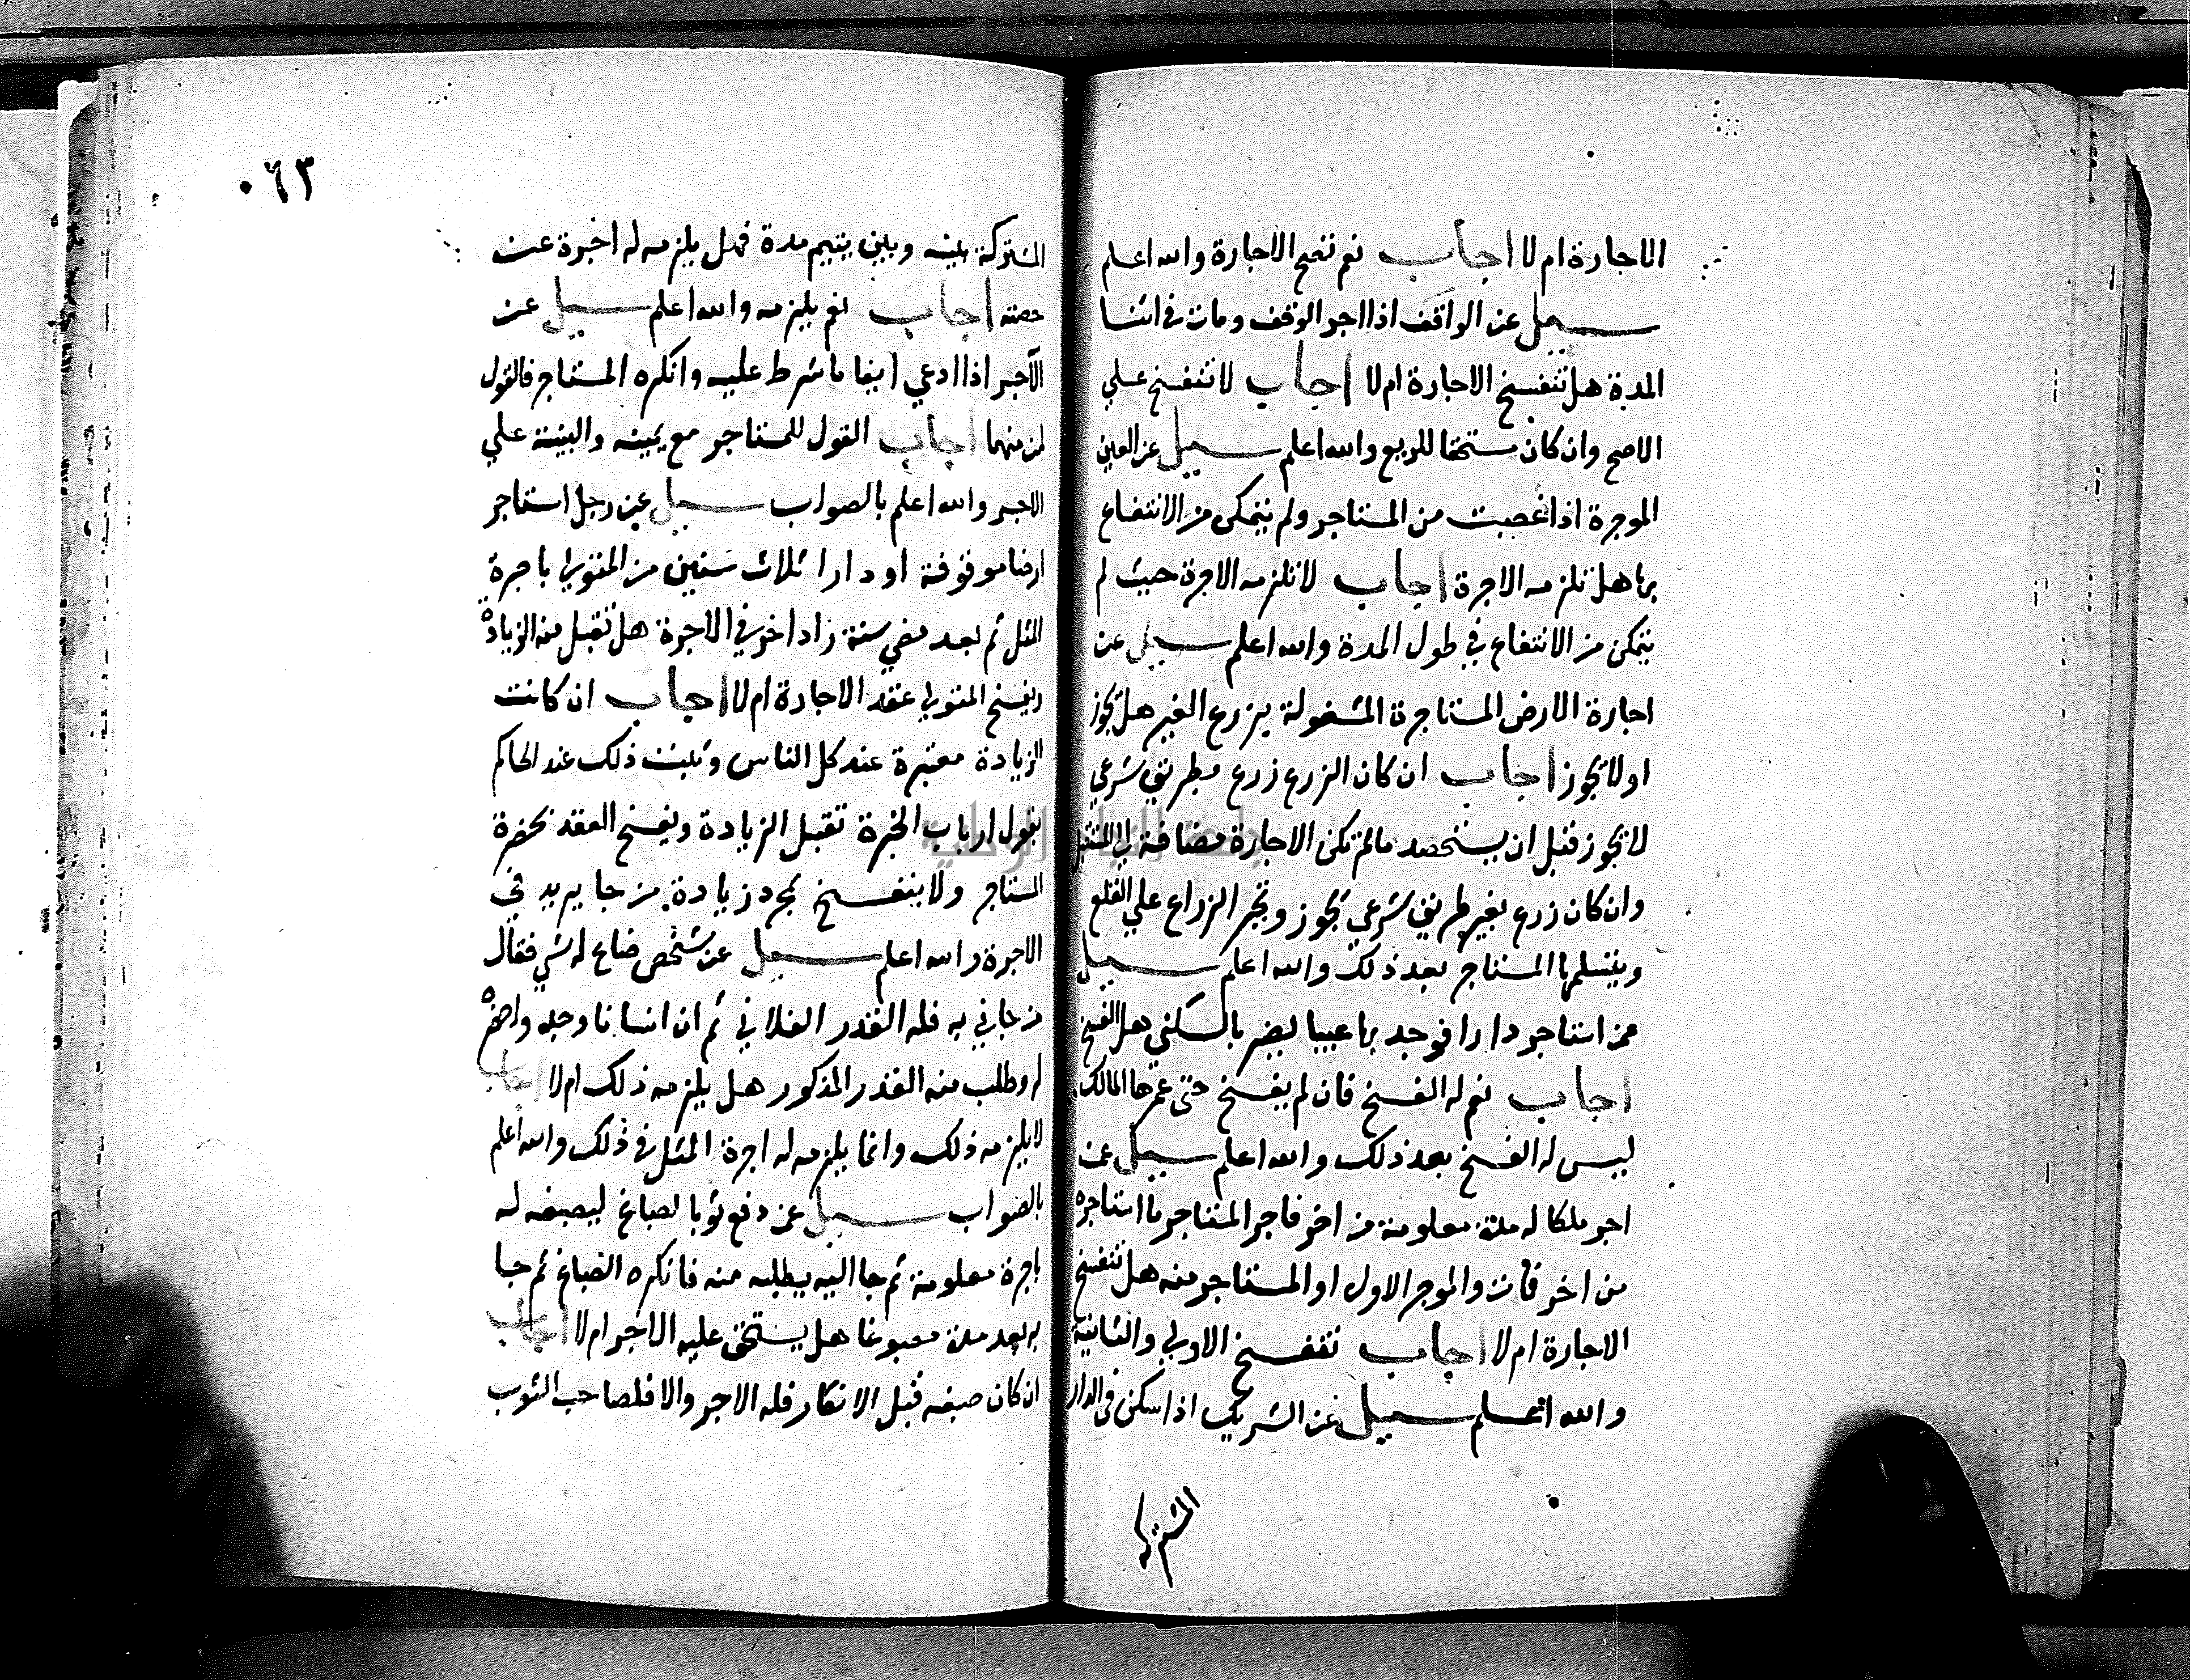 الاجارة ام لا اجاب نعم تصح الاجارة والله اعلم
سيل عن الواقف اذا اجر الوقف ومات في اثنا
المدة هل تنفسخ الاجارة ام لا اجاب لا تنفسخ علي
الاصح وان كان مستحقا للريع والله اعلم سيل عن العين
الموجرة اذا غصبت من المستاجر ولم يتمكن من الانتفاع
بها هل تلزمه الاجرة اجاب لا تلزمه الاجرة حيث لم
يتمكن من الانتفاع في طول المدة والله اعلم سيل عن
اجارة الارض المستاجرة المشغولة بزرع الغير هل تجوز
او لا تجوز اجاب ان كان الزرع زرع بطريق شرعي
لا تجوز قبل ان يستحصد ما لم تكن الاجارة مضافة
وان كان زرع بغير طريق شرعي تجوز وتجبر الزراع علي القلع
ويتسلمها المستاجر بعد ذلك والله اعلم سيل
عمن استاجر دارا فوجد بها عيبا يضر بالسكني هل الفسخ
اجاب نعم له الفسخ فان لم يفسخ حتى عمرها المالك
ليس له الفسخ بعد ذلك والله اعلم سيل عمن
اجر ملكا له مدة معلومة من اخر فاجر المستاجر ما استاجره
من اخر فمات والموجر الاول او المستاجر منه هل تنفسخ
الاجارة ام لا اجاب تنفسخ الاولي والثانية
والله اعلم سيل عن الشريك اذا سكن في الدار
المشتركة
٠٦٣
المشتركة بينه وبين يتيم مدة فهل يلزمه له اجرة عن
حصته اجاب نعم يلزمه والله اعلم سيل عن
الاجير اذا ادعي ايفا ما شرط عليه وانكره المستاجر فالقول
لمن منهما اجاب القول للمستاجر مع يمينه والبينة علي
الاجير والله اعلم بالصواب سيل عن رجل استاجر
ارضا موقوفة او دارا ثلاث سنين من المتولي باجرة
المثل ثم بعد مضي سنة زاد اخر في الاجرة هل تقبل منه الزيادة
ويفسخ المتولي عقد الاجارة ام لا اجاب ان كانت
الزيادة معتبرة عند كل الناس وثبت ذلك عند الحاكم
بقول ارباب الخبرة تقبل الزيادة ويفسخ العقد بحضرة
المستاجر ولا ينفسخ بمجرد زيادة من جا يريد في
الاجرة والله اعلم سيل عن شخص ضاع له شي فقال
من جاني به فله القدر الفلاني ثم ان انسانا وجده واحضره
له وطلب منه القدر المذكور هل يلزمه ذلك ام لا اجاب
لا يلزمه ذلك وانما يلزمه له اجرة المثل في ذلك والله اعلم
بالصواب سيل عن دفع ثوبا لصباغ ليصبغه له
باجرة معلومة ثم جا اليه يطلبه منه فانكره الصباغ ثم جا
به بعد مدة مصبوغا هل يستحق عليه الاجر ام لا اجاب
ان كان صبغه قبل الانكار فله الاجر والا فلصاحب الثوب